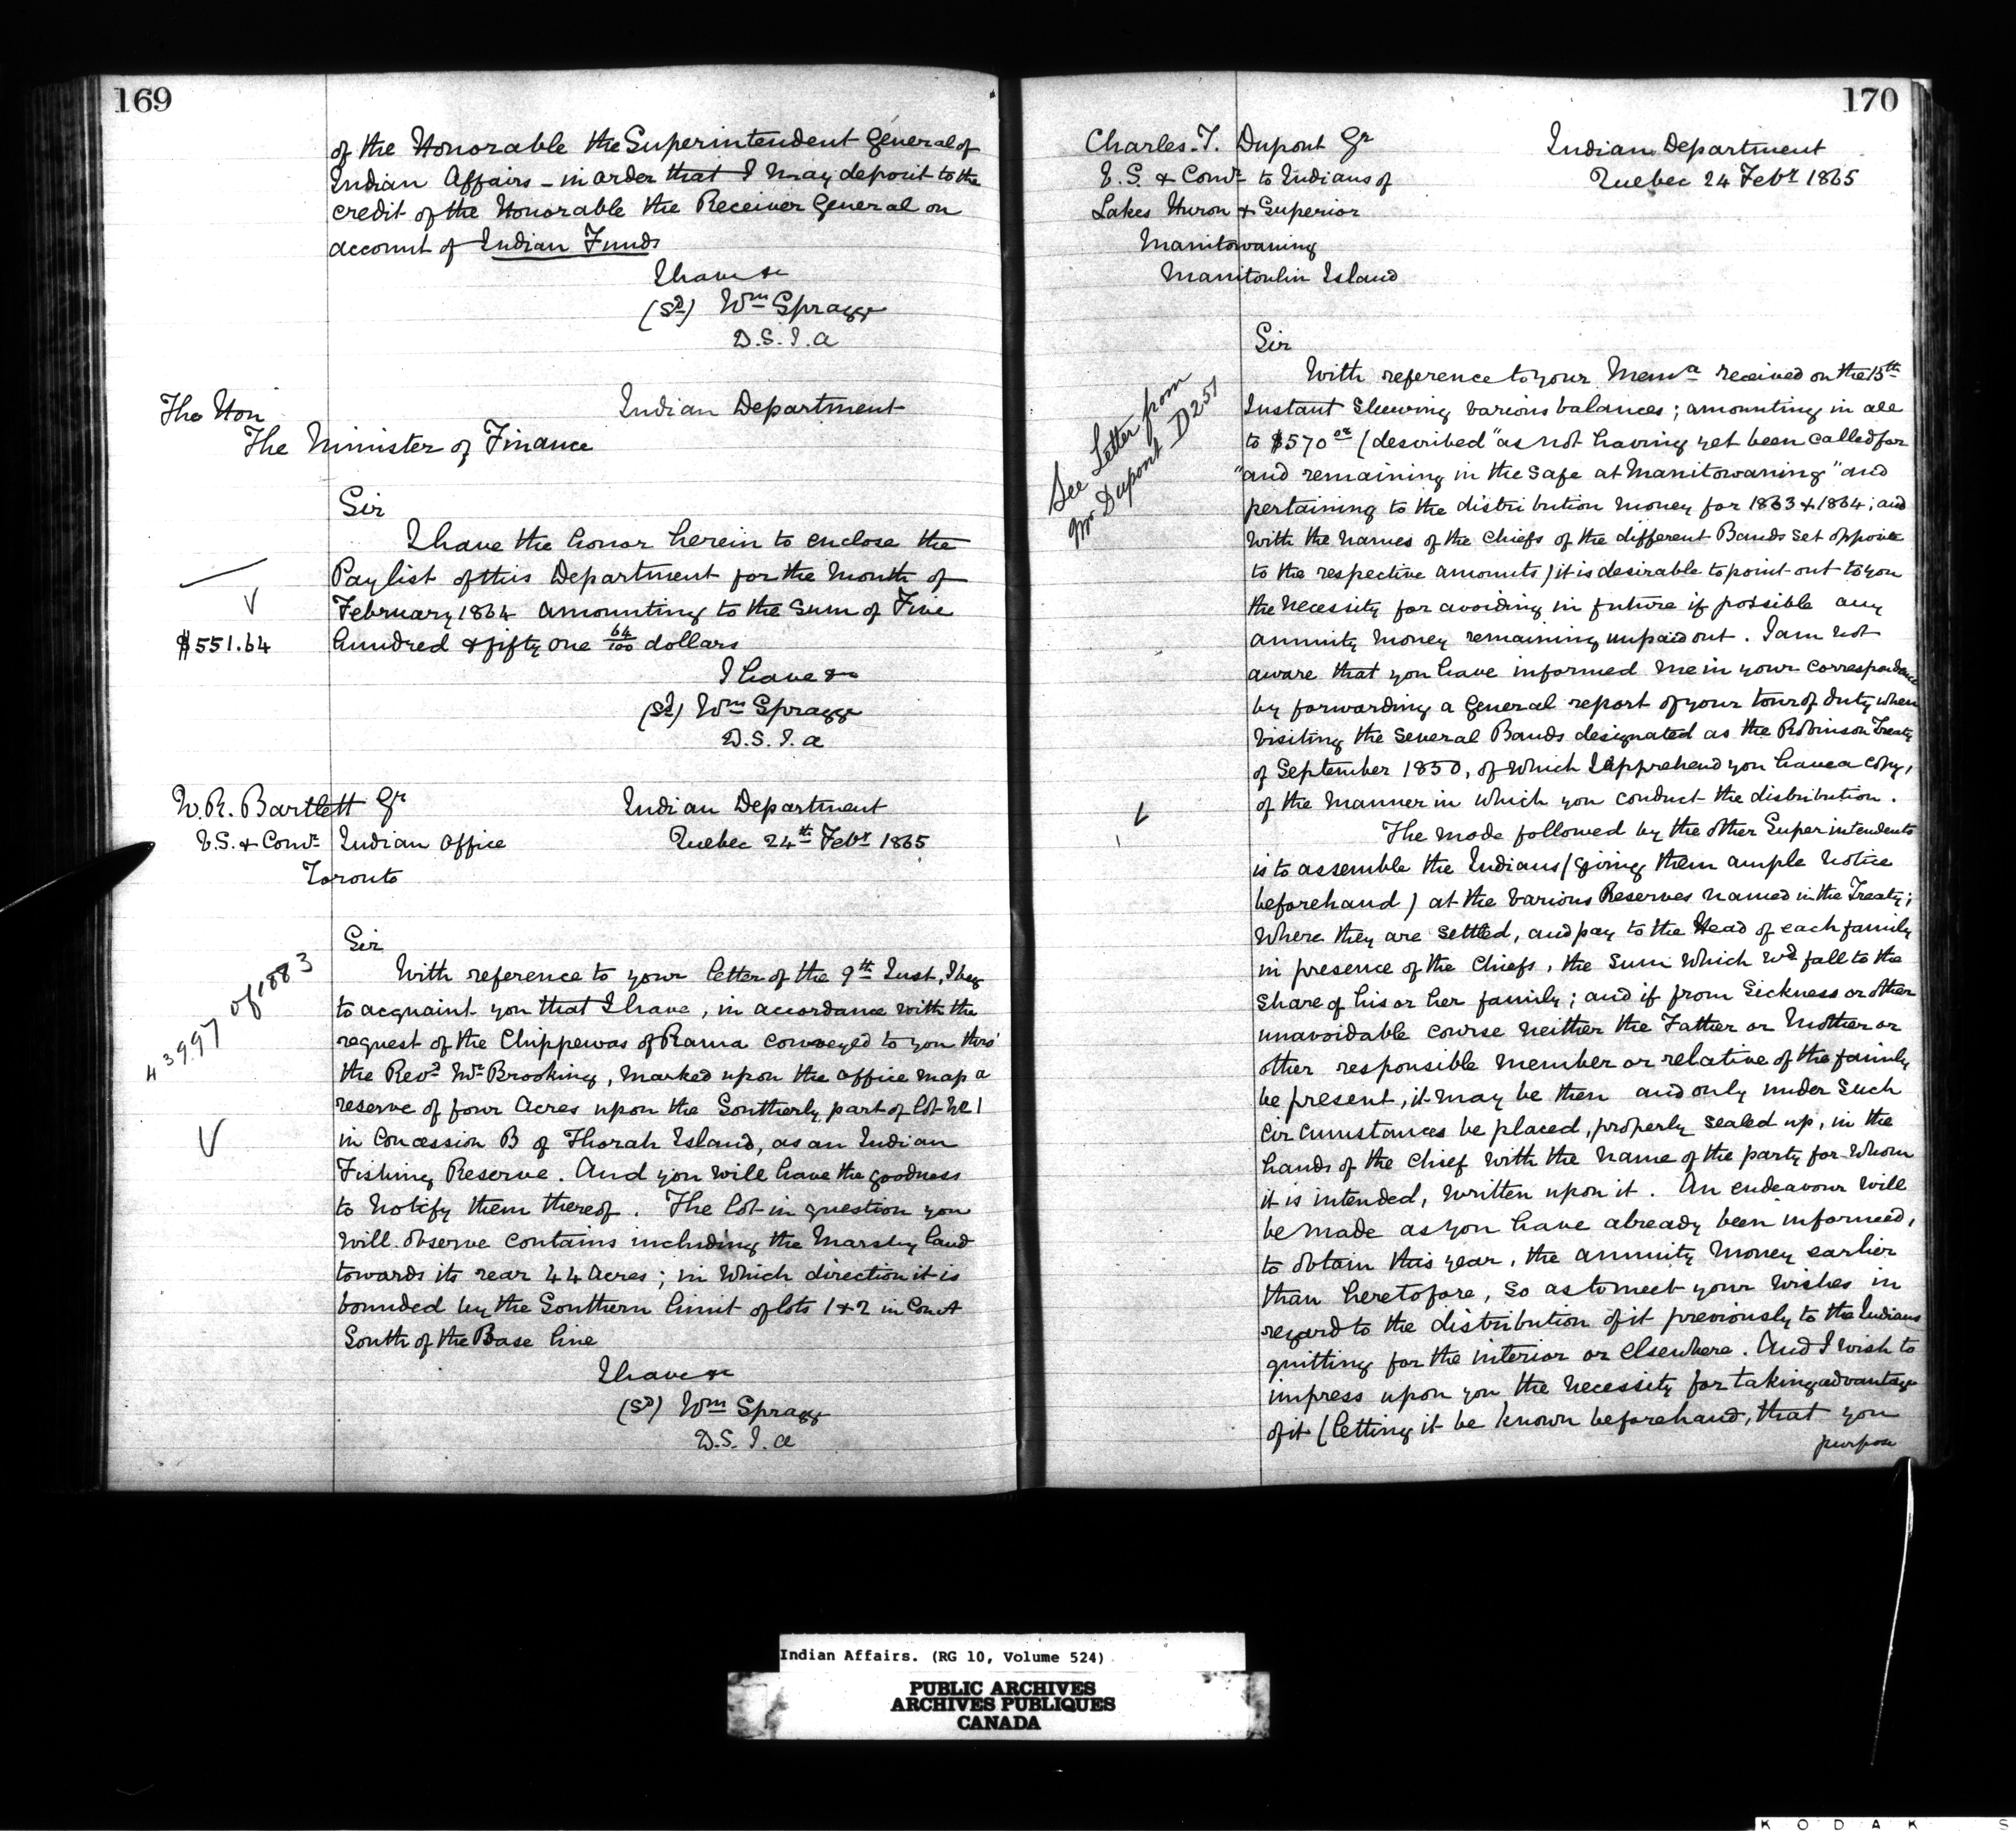 169
of the Honorable the Superintendent General of
Indian Affairs - in order that I may deposit to the
credit of the Honorable the Receiver General on
account of Indian Funds
I have &c
(Sd) Wm Spragge
D.S.I.A
The Hon
The Minister of Finance
Indian Department
Sir
I have the honor herein to enclose the
Paylist of this Department for the Month of
February 1864 amounting to the sum of Five
hundred & fifty one 64/100 dollars
$551.64
I have &c
(Sd) Wm Spragge
D.S.I.A
W.R. Bartlett Esqr
V.S. & Comr Indian Office
Toronto
Indian Department
Quebec 24th Febr 1865
Sir
43997 of 1883
With reference to your letter of the 9th Inst, I beg
to acquaint you that I have, in accordance with the
request of the Chippewas of Rama conveyed to you thro'
the Revd Mr Brooking, marked upon the office map a
reserve of four Acres upon the Southerly part of lot No 1
in Concession B of Thorah Island, as an Indian
Fishing Reserve. And you will have the goodness
to notify them thereof. The lot in question you
will observe contains including the Marshy land
towards its rear 44 Acres; in which direction it is
bounded by the Southern limit of lots 1 & 2 in Con A
South of the Base line
I have &c
(Sd) Wm Spragge
D.S.I.A
170
Charles T. Dupont Esqr
V.S. & Comr to Indians of
Lakes Huron & Superior
Manitowaning
Manitoulin Island
Indian Department
Quebec 24 Febr 1865
Sir
See Letter from
Mr Dupont D251
With reference to your Mema received on the 15th
Instant Shewing various balances; amounting in all
to $570 (described "as not having yet been called for
"and remaining in the safe at Manitowaning" and
pertaining to the distribution money for 1863 & 1864; and
with the names of the Chiefs of the different Bands set opposite
to the respective amounts) it is desirable to point out to you
the necessity for avoiding in future if possible any
annuity money remaining unpaid out. I am not
aware that you have informed me in your correspondence
by forwarding a General report of your tour of duty when
visiting the several Bands designated as the Robinson Treaty
of September 1850, of which I apprehend you have a copy,
of the manner in which you conduct the distribution.
The mode followed by the other Superintendents
is to assemble the Indians (giving them ample notice
beforehand) at the various Reserves named in the Treaty;
where they are settled, and pay to the Head of each family
in presence of the Chiefs, the sum which wd fall to the
share of his or her family; and if from Sickness or other
unavoidable course neither the Father or Mother or
other responsible member or relative of the family
be present, it may be then and only under such
circumstances be placed, properly sealed up, in the
hands of the Chief with the name of the party for whom
it is intended, written upon it. An endeavour will
be made as you have already been informed,
to obtain this year, the annuity money earlier
than heretofore, so as to meet your wishes in
regard to the distribution of it previously to the Indians
quitting for the interior or elsewhere. And I wish to
impress upon you the necessity for taking advantage
of it (letting it be known beforehand, that you
purpose
Indian Affairs. (RG 10, Volume 524)
PUBLIC ARCHIVES
ARCHIVES PUBLIQUES
CANADA
K O D A K S